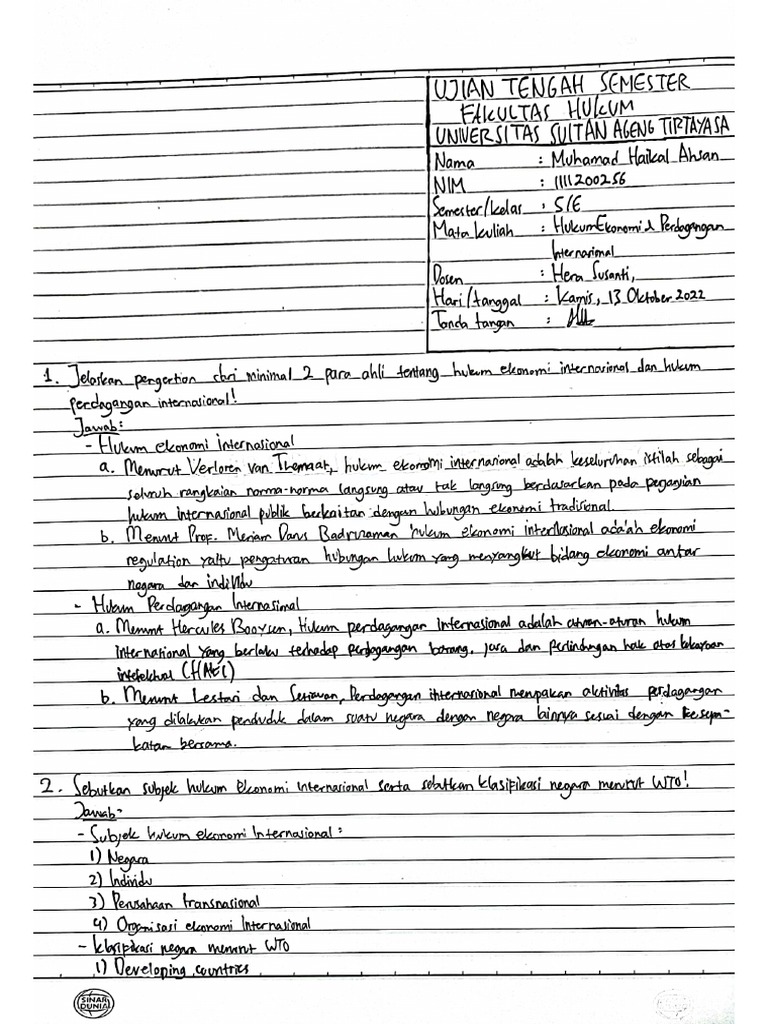 UJIAN TENGAH SEMESTER
FAKULTAS HUKUM
UNIVERSITAS SULTAN AGENG TIRTAYASA
Nama : Muhamad Haikal Ahsan
NIM : 1111200256
Semester/kelas : 5/E
Mata kuliah : Hukum Ekonomi & Perdagangan
Internasional
Dosen : Hera Susanti,
Hari/tanggal : Kamis, 13 Oktober 2022
Tanda tangan :
1. Jelaskan pengertian dari minimal 2 para ahli tentang hukum ekonomi internasional dan hukum
perdagangan internasional!
Jawab:
- Hukum ekonomi internasional
a. Menurut Verloren van Themaat, hukum ekonomi internasional adalah keseluruhan istilah sebagai
seluruh rangkaian norma-norma langsung atau tak langsung berdasarkan pada perjanjian
hukum internasional publik berkaitan dengan hubungan ekonomi tradisional.
b. Menurut Prof. Meriam Darus Badruzaman hukum ekonomi internasional adalah ekonomi
regulation yaitu pengaturan hubungan hukum yang menyangkut bidang ekonomi antar
negara dan individu
- Hukum Perdagangan Internasional
a. Menurut Hercules Booysen, Hukum perdagangan internasional adalah aturan-aturan hukum
internasional yang berlaku terhadap perdagangan barang, jasa dan perlindungan hak atas kekayaan
intelektual (HAKI)
b. Menurut Lestari dan Setiawan, Perdagangan internasional merupakan aktivitas perdagangan
yang dilakukan penduduk dalam suatu negara dengan negara lainnya sesuai dengan kesepa-
katan bersama.
2. Sebutkan subjek hukum ekonomi internasional serta sebutkan klasifikasi negara menurut WTO!
Jawab:
- Subjek hukum ekonomi Internasional :
1) Negara
2) Individu
3) Perusahaan transnasional
4) Organisasi ekonomi Internasional
- klasifikasi negara menurut WTO
1) Developing countries
SINAR
DUNIA